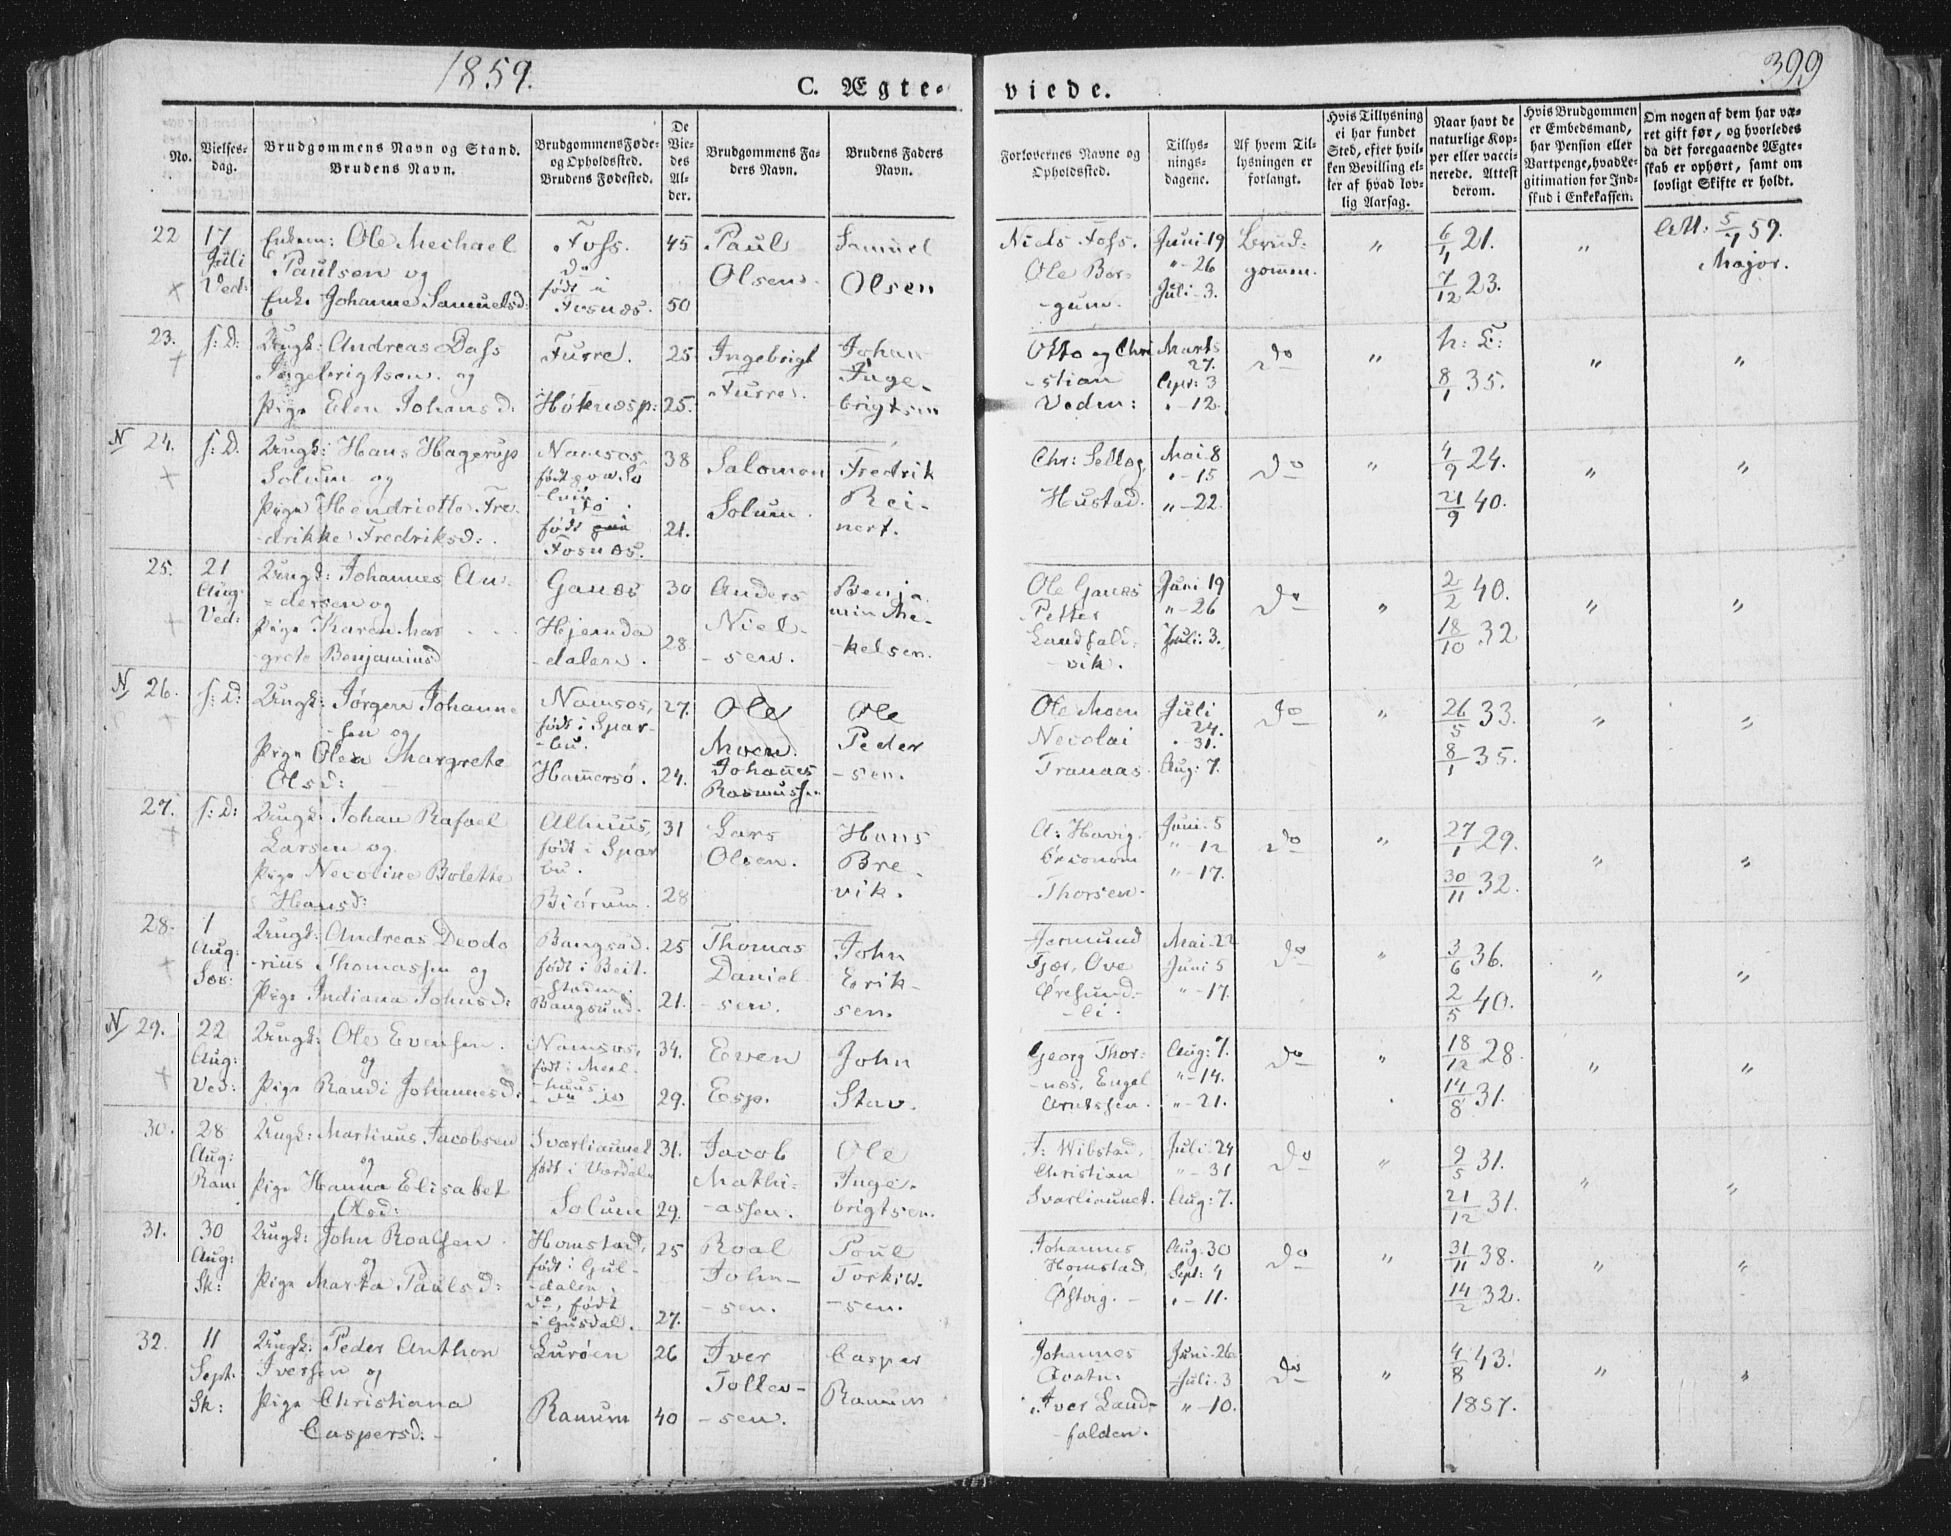 1859.
C. Ægte-
viede.
399
No.
Vielses-
dag.
Brudgommens Navn og Stand.
Brudens Navn.
Brudgommens Føde-
og Opholdssted.
Brudens Fødested.
De
Vie-
des
Al-
der.
Brudgommens Fa-
ders Navn.
Brudens Faders
Navn.
Forlovernes Navne og
Opholdssted.
Tillys-
nings-
dagene.
Af hvem Til-
lysningen er
forlangt.
Hvis Tillysning
ei har fundet
Sted, efter hvil-
ken Bevilling el-
ler af hvad lov-
lig Aarsag.
Naar havt de
naturlige Kop-
per eller vacci-
nerede. Attest
derom.
Hvis Brudgommen
er Embedsmand,
har Pension eller
Vartpenge, hvad Le-
gitimation for Ind-
skud i Enkekassen.
Om nogen af dem har væ-
ret gift før, og hvorledes
da det foregaaende Ægte-
skab er ophørt, samt om
lovligt Skifte er holdt.
22 17 Juli Ved:
Enkem: Ole Mechael
Paulsen og
Enke Johanne Samuelsd:
Foss.
do
født i
Fosnæs.
45
50
Paul
Olsen.
Samuel
Olsen
Niels Foss.
Ole Bor-
-gum.
Juni 19
" - 26
Juli - 3.
Brud-
gommen.
"
6/1 21.
7/12 23.
"
Att: 5/7 59.
Major.
23. s: D:
Ungk: Andreas Dass
Ingebrigtsen og
Pige Elen Johansd:
Furre.
Høknæsp:
25
25.
Ingebrigt
Furre.
Johan
Inge-
brigtsen
Otto og Chri
-stian
Veden:
Marts
27.
Apr: 3
" - 12.
do
"
h: T:
8/1 35.
"
"
N 24. s: D.
Ungk: Hans Hagerup
Solum og
Pige Hendriette Fre
-drikke Fredriksd:
Namsos
do
født
Fosnæs.
38
21.
Salomon
Solum.
Fredrik
Rei-
nert.
Chr: Sellæg
Hustad.
Mai 8
" - 15
" - 22.
do
"
4/9 24.
21/9 40.
"
"
25. 21 Aug. Ved:
Ungk: Johannes An-
-dersen og
Pige Karen Mar
grete Benjaminsd
Ganæs
Hjemda
-dalen.
30
28
Anders
Niel-
-sen.
Benja
min Me-
-kelsen.
Ole Ganæs
Petter
Landfald-
-vik.
Juni 19
" - 26
Juli: 3.
do
"
2/2 40.
18/10 32
"
"
N 26. s: D:
Ungk: Jørgen Johanne
-sen og
Pige Olea Margrete
Olsd:
Namsos,
født i Spar-
-bu.
Hammersø.
27.
24.
Ole
Moen.
Johannes
Rasmussen
Ole
Peder
-sen.
Ole Moen
Necolai
Tranaas
Juli
24.
" - 31.
Aug: 7.
do
"
26/5 33.
8/1 35.
"
"
27. s: D:
Ungk: Johan Rafael
Larsen og
Pige Necoline Bolette
Hansd:
Alhuus,
født i Spar
bu.
Biørum.
31
28
Lars
Olsen.
Hans
Bre-
vik.
A: Havig
Thorsen.
Juni. 5
" - 12
" - 17.
do
"
27/1 29.
30/11 32.
"
"
28. 1 Aug: Sæv:
Ungk: Andreas Deodo
-rius Thomassen og
Pige Indiana Johnsd:
Bangsund
født i Beit-
-staden.
Bangsund.
25
21.
Thomas
Daniel
-sen.
John
Erik-
sen.
Jermund
Fjær, Ove
Øresund-
-li.
Mai. 22
Juni 5
" - 17.
do
"
3/6 36.
2/5 40.
"
"
N 29. 22 Aug: Ved:
Ungk: Ole Evensen.
og
Pige Randi Johannesd:
Namsos,
født i Meel-
-huus.
do do
34.
29.
Even
Esp.
John
Stav.
Georg Thor-
-næs, Engel
Arntssen.
Aug: 7.
" - 14.
" - 21.
do
"
18/12 28.
14/8 31.
"
"
30. 28 Aug: Ram
Ungk: Martinus Jacobsen
og
Pige Hanna Elisabet
Olsd:
Sværliaunet
født i Værdalen
Solum
31.
29.
Jacob
Mathi-
-assen.
Ole
Inge-
brigtsen.
F: Wibstad,
Christian
Sværliaunet.
Juli. 24
" - 31
Aug: 7.
do
"
9/5 31.
21/12 31.
"
"
31. 30 Aug: Sk:
Ungk: John Roalsen
og
Pige Marta Paulsd:
Homstad,
født i Gul-
-dalen.
do, født
i Gusdal.
25
27.
Roal
John-
-sen.
Poul
Torkil-
-sen.
Johannes
Homstad,
Østvig.
Aug. 30
Sept: 4
" - 11.
do
"
31/11 38.
14/2 32.
"
"
32. 11 Sept. Sk:
Ungk: Peder Anthon
Iversen og
Pige Christiana
Caspersd:
Lurøen
Ranum
26
40
Iver
Tollev-
-sen.
Casper
Ranum
Johannes
Iver Land-
-falden.
Juni. 26
Juli. 3
" - 10.
do
"
4/8 43.
1857.
"
"